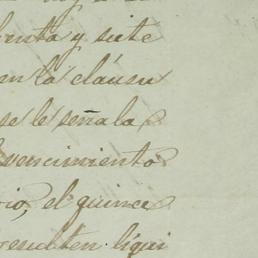 y siete
en la cláusu
se le señala
vencimiento
rio, el quince
resulten liqui